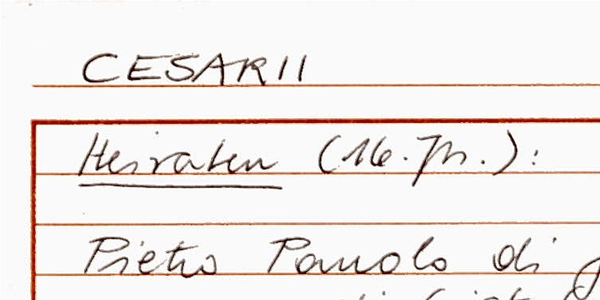 CESARII
Heiraten (16. Jh.):
Pietro Paolo di
di